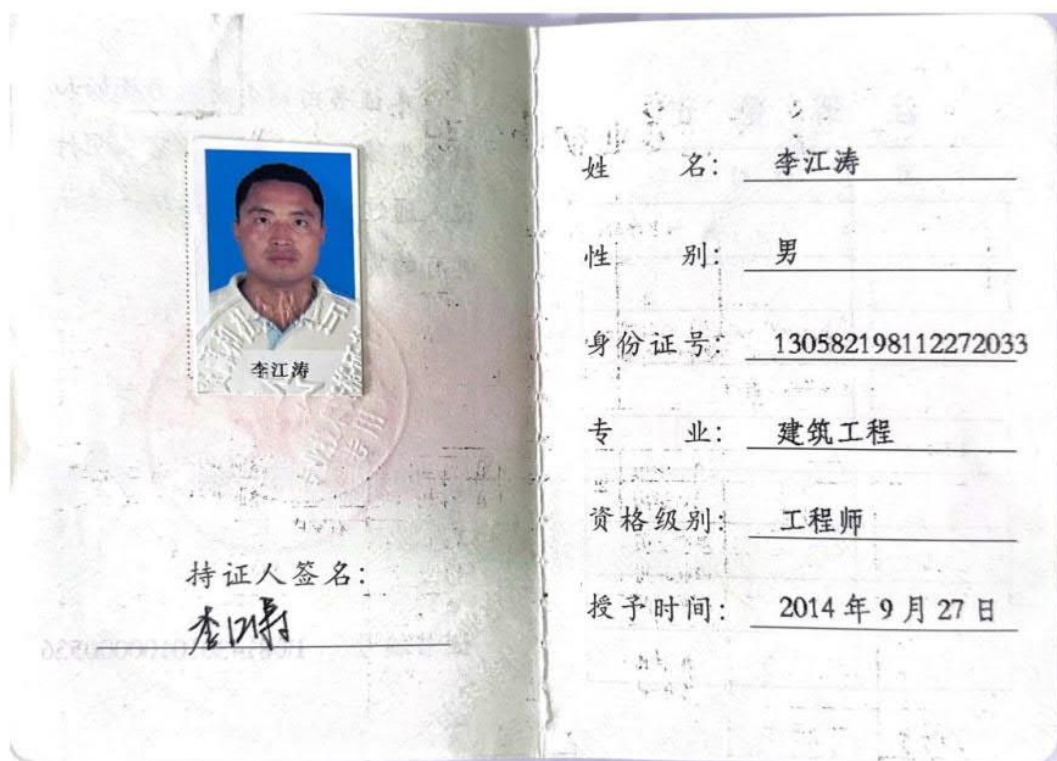 李江涛
持证人签名：
李江涛
姓 名： 李江涛
性 别： 男
身份证号： 130582198112272033
专 业： 建筑工程
资格级别： 工程师
授予时间： 2014 年 9 月 27 日